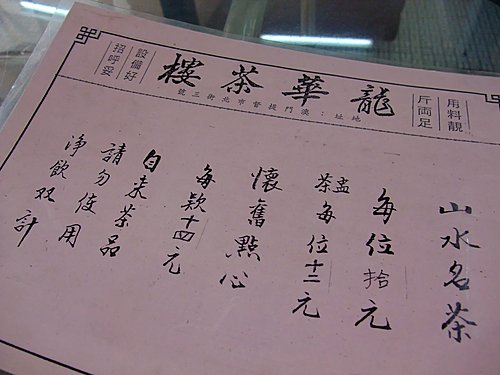 龍華茶樓
用料靚
斤両足
設備好
招呼妥
地址：澳門提督市北街三號
山水名茶
每位拾元
茶盅每位十二元
懷舊點心
每款十四元
自来茶品
請勿使用
净飲双計